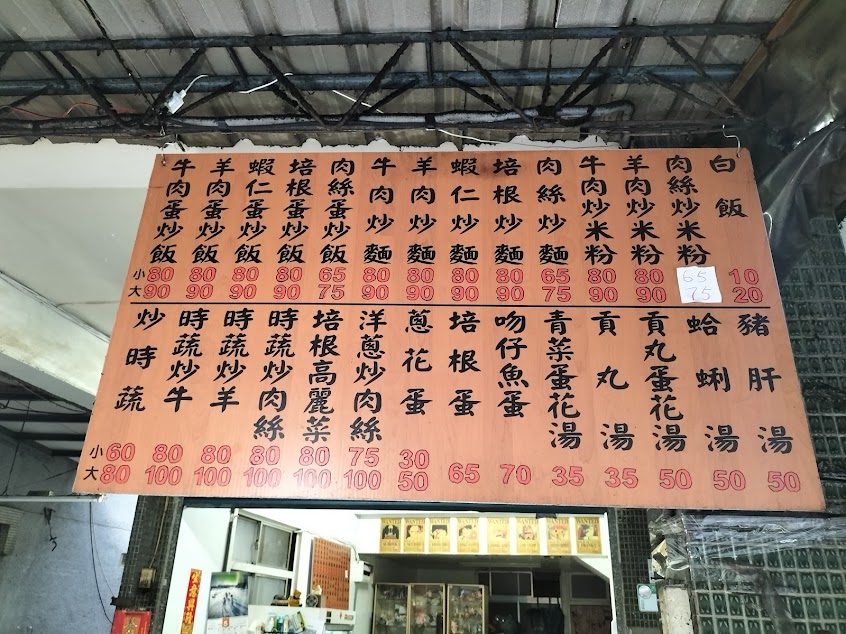 牛肉蛋炒飯 小80 大90
羊肉蛋炒飯 80 90
蝦仁蛋炒飯 80 90
培根蛋炒飯 80 90
肉絲蛋炒飯 65 75
牛肉炒麵 80 90
羊肉炒麵 80 90
蝦仁炒麵 80 90
培根炒麵 80 90
肉絲炒麵 65 75
牛肉炒米粉 80 90
羊肉炒米粉 80 90
肉絲炒米粉 65 75
白飯 10 20
炒時蔬 小60 大80
時蔬炒牛 80 100
時蔬炒羊 80 100
時蔬炒肉絲 80 100
培根高麗菜 80 100
洋蔥炒肉絲 75 100
蔥花蛋 30 50
培根蛋 65
吻仔魚蛋 70
青菜蛋花湯 35
貢丸湯 35
貢丸蛋花湯 50
蛤蜊湯 50
豬肝湯 50